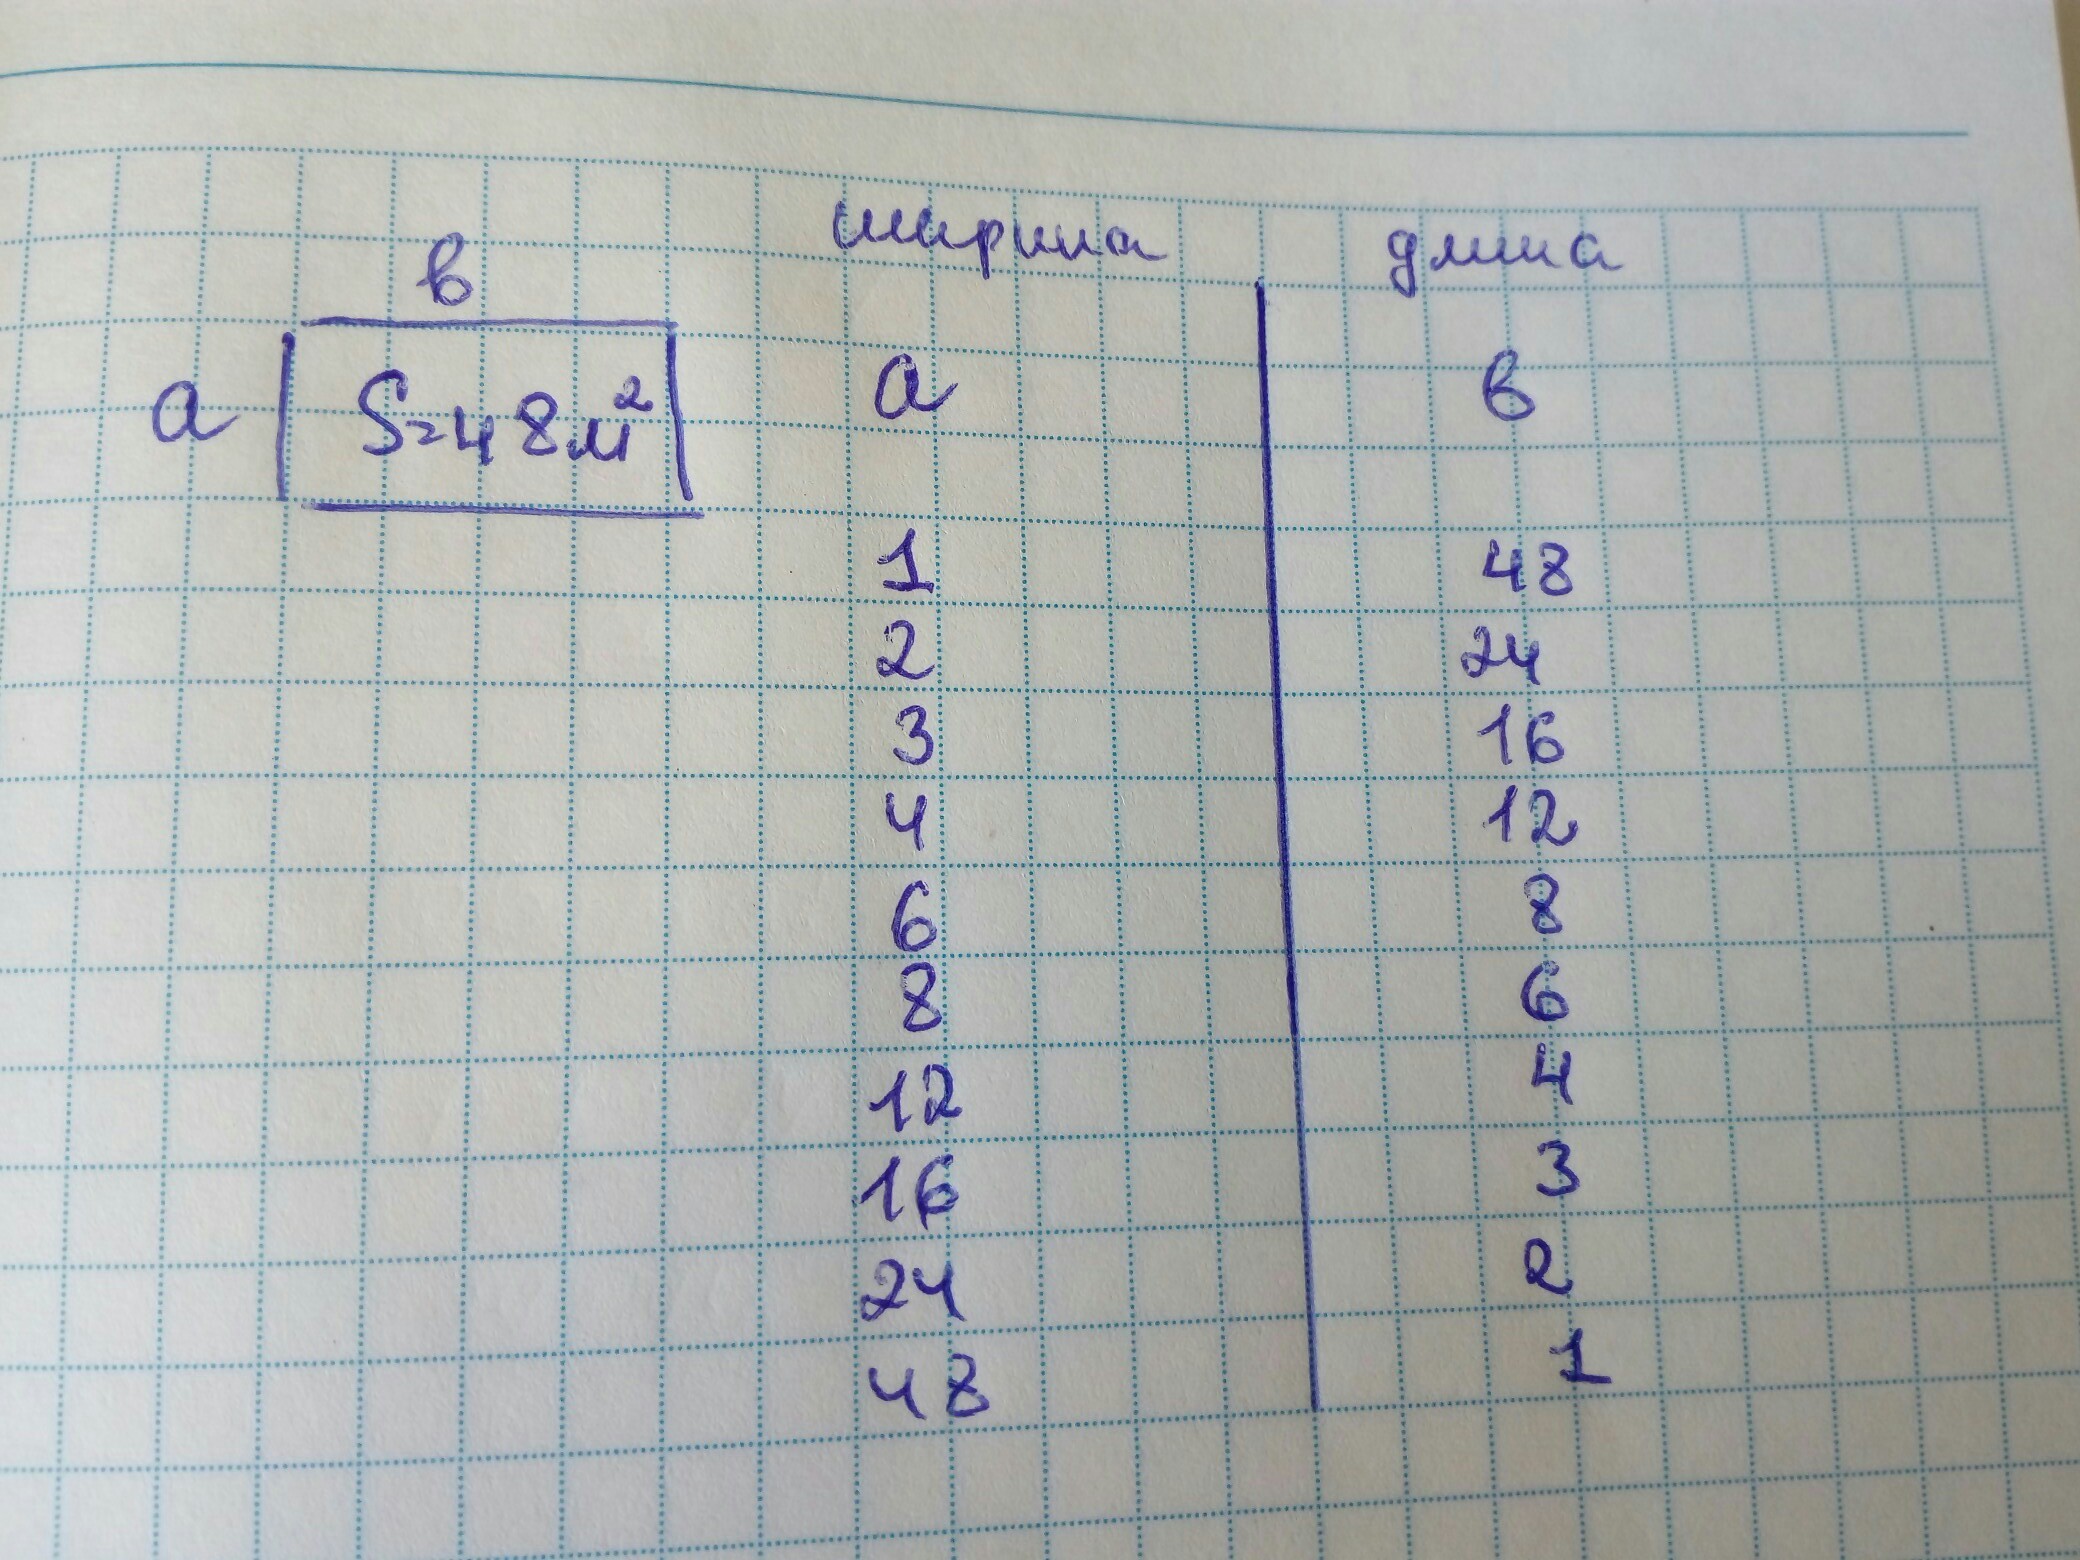 ширина длина
в
a S=48м² a в
1 48
2 24
3 16
4 12
6 8
8 6
12 4
16 3
24 2
48 1